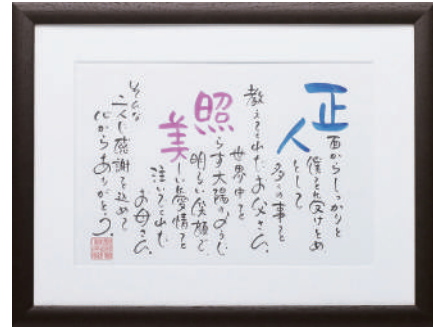 正面からしっかりと
僕を受けとめ
人として
多くの事を
教えてくれたお父さん。
世界中を
照らす太陽のように
明るい笑顔で、
美しい愛情を
注いでくれた
お母さん。
そんな
二人に感謝を込めて
心からありがとう。